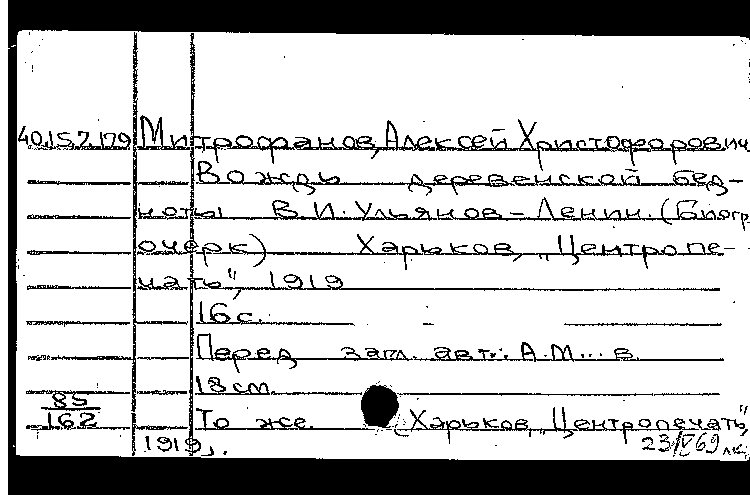 40.157.179 Митрофанов, Алексей Христофорович
Вождь деревенской бед-
ноты В.И. Ульянов-Ленин. (Биогр.
очерк) Харьков, "Центропе-
чать", 1919
16 с. –
Перед загл. авт.: А.М...в.
18 см.
85
162 То же. (Харьков, "Центропечать",
1919).
23/IV 69